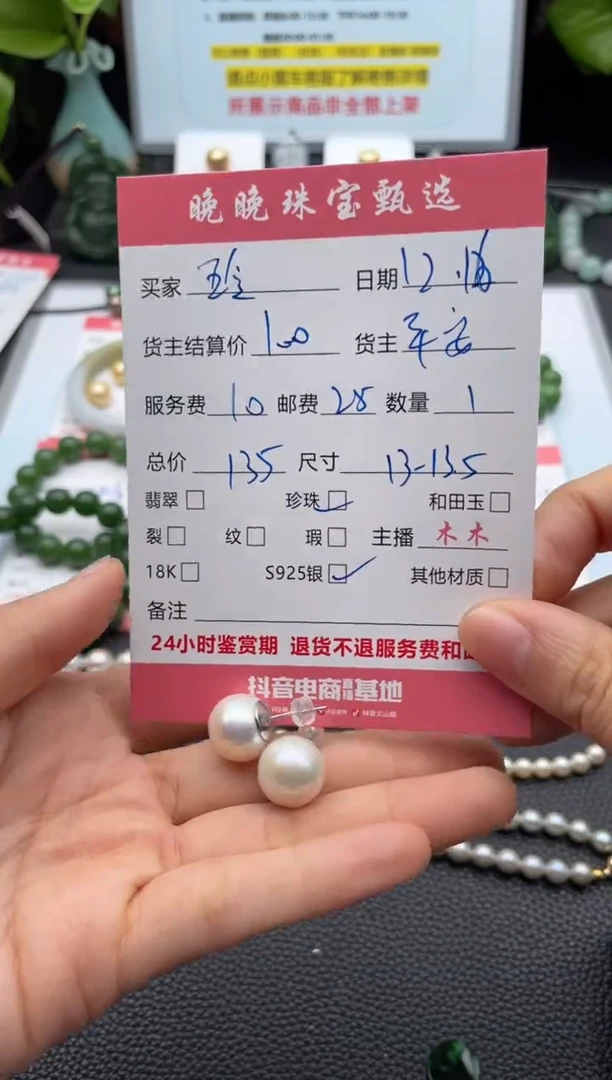 所展示商品非全部上架
晚晚珠宝甄选
买家 日期 12.
货主结算价 100 货主 平安
服务费 10 邮费 25 数量 1
总价 135 尺寸 13-13.5
翡翠 珍珠 和田玉
裂 纹 瑕 主播 木木
18K S925银 其他材质
备注
24小时鉴赏期 退货不退服务费和
抖音电商直播基地